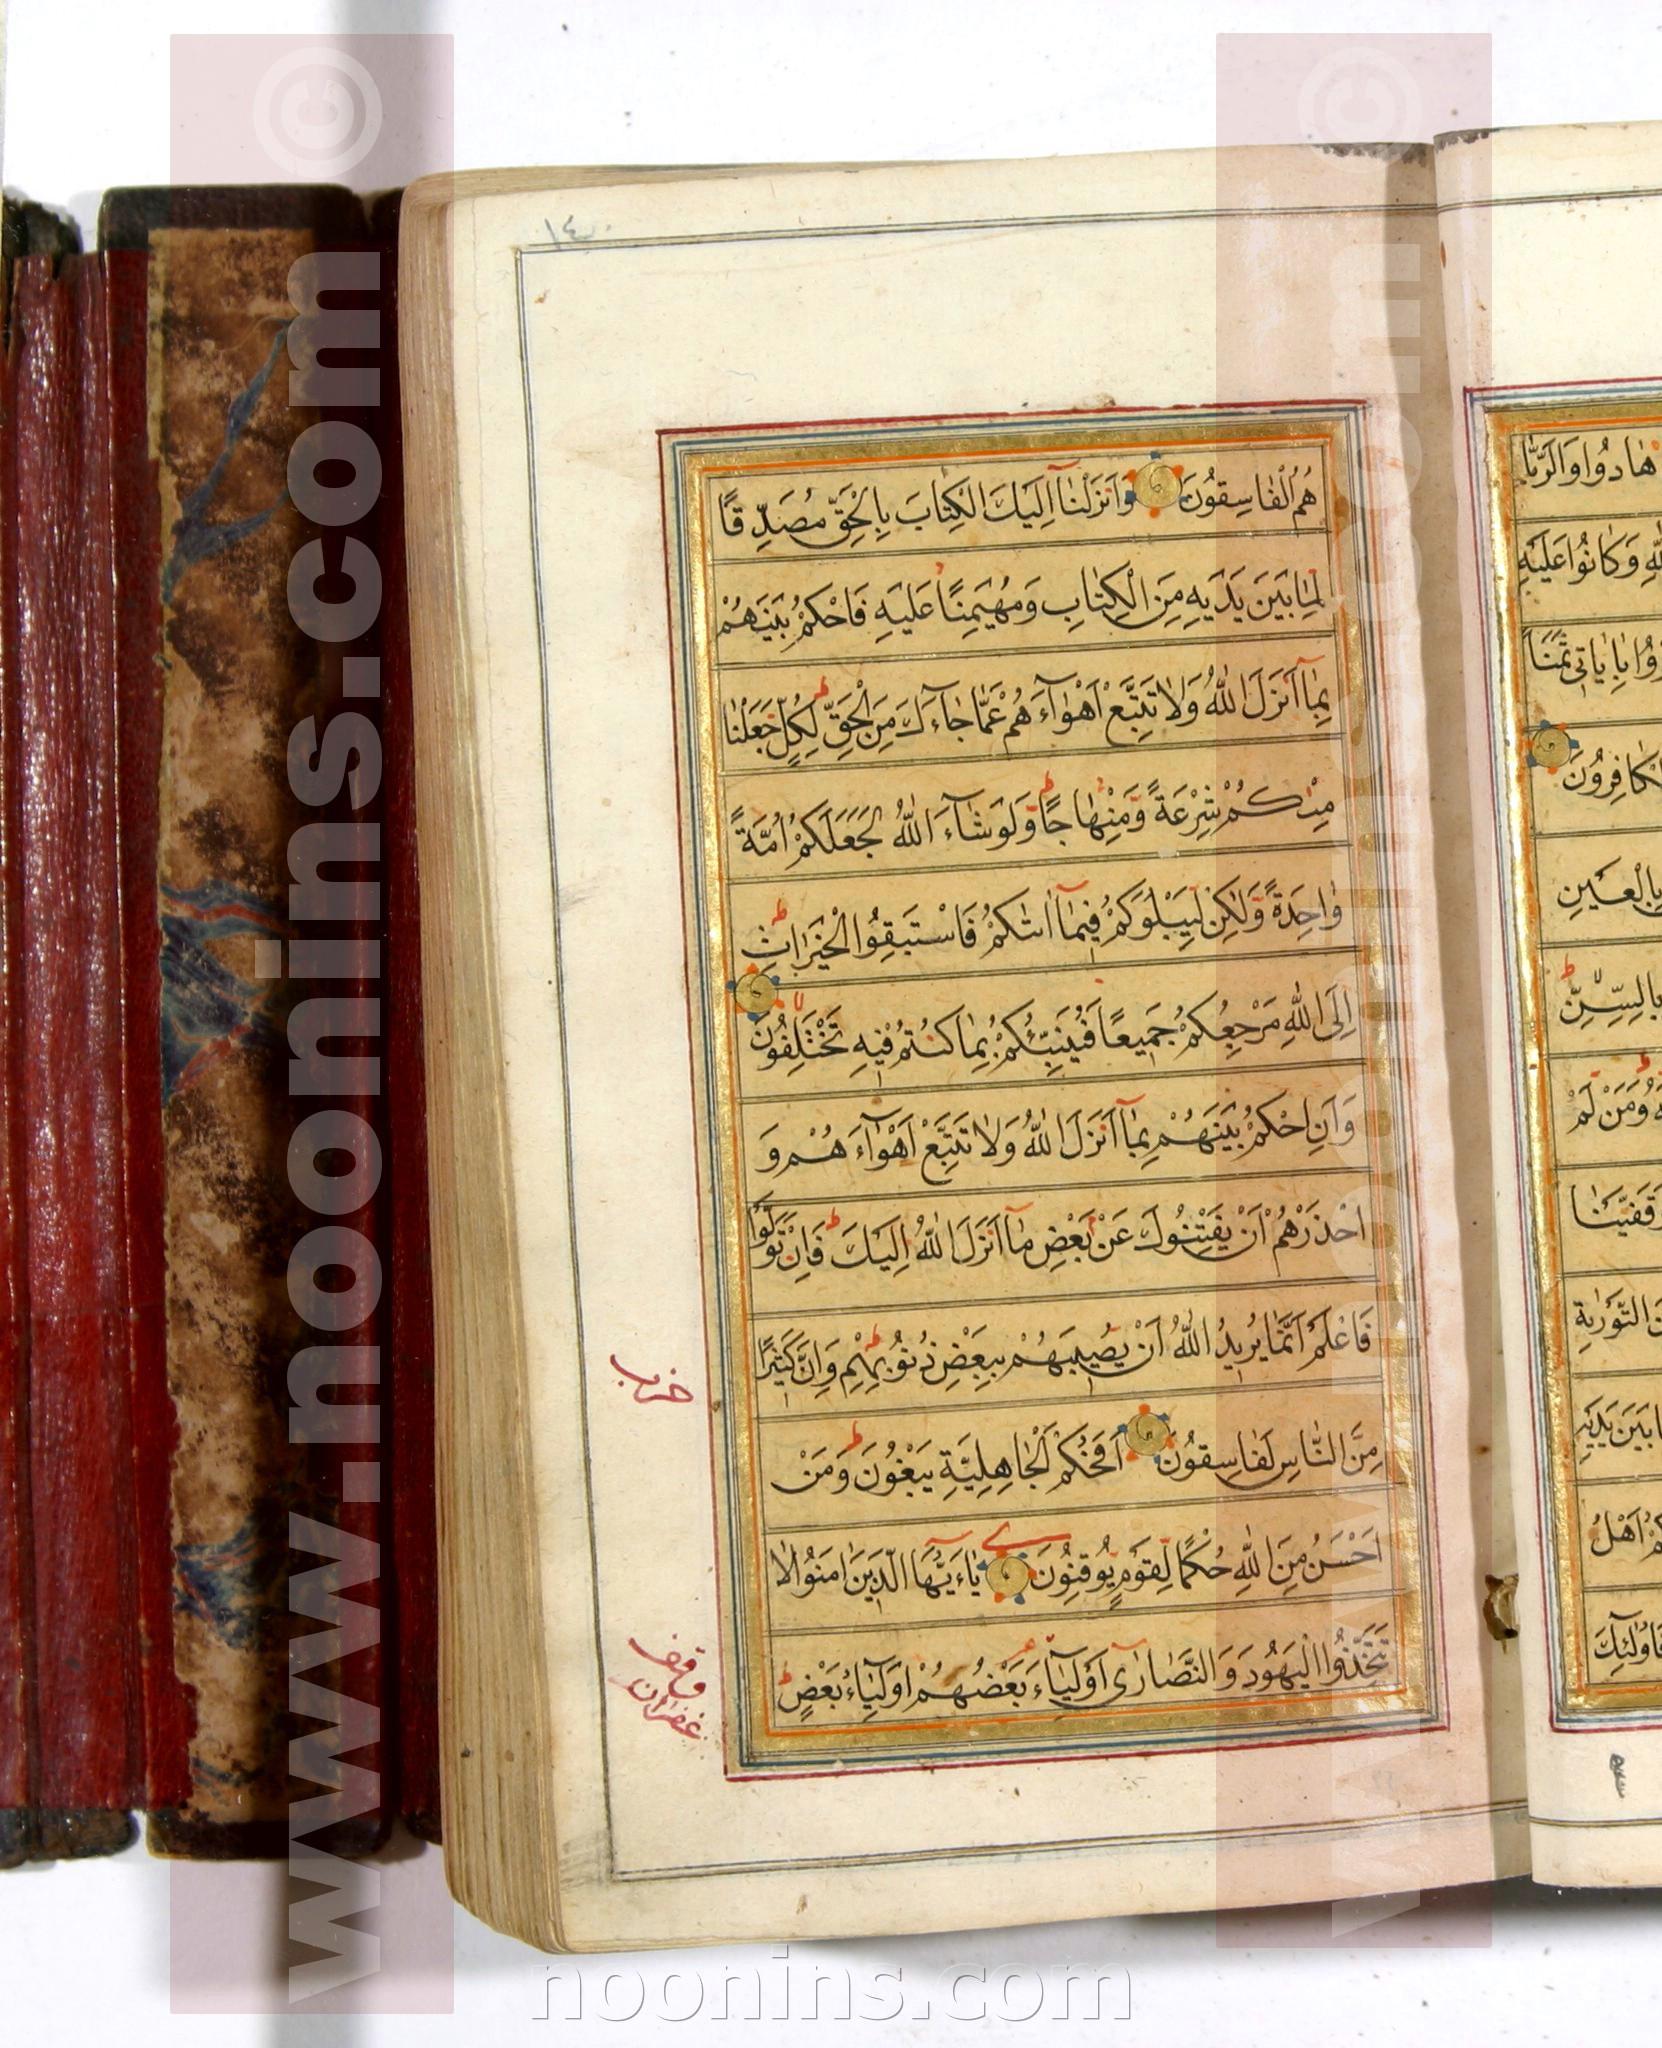 ١٤٠
هُمُ الْفٰاسِقُونَ وَاَنْزَلْنٰا اِلَيْكَ الْكِتٰابَ بِالْحَقِّ مُصَدِّقًا
لِمٰا بَيْنَ يَدَيْهِ مِنَ الْكِتٰابِ وَمُهَيْمِنًا عَلَيْهِ فَاحْكُمْ بَيْنَهُمْ
بِمٰا اَنْزَلَ اللّٰهُ وَلٰا تَتَّبِعْ اَهْوٰآءَهُمْ عَمّٰا جٰآءَكَ مِنَ الْحَقِّ لِكُلٍّ جَعَلْنٰا
مِنْكُمْ شِرْعَةً وَمِنْهٰاجًا وَلَوْ شٰآءَ اللّٰهُ لَجَعَلَكُمْ اُمَّةً
وٰاحِدَةً وَلٰكِنْ لِيَبْلُوَكُمْ فِيمٰا اٰتٰكُمْ فَاسْتَبِقُوا الْخَيْرٰاتِ
اِلَى اللّٰهِ مَرْجِعُكُمْ جَمِيعًا فَيُنَبِّئُكُمْ بِمٰا كُنْتُمْ فِيهِ تَخْتَلِفُونَ
وَاَنِ احْكُمْ بَيْنَهُمْ بِمٰا اَنْزَلَ اللّٰهُ وَلٰا تَتَّبِعْ اَهْوٰآءَهُمْ وَ
احْذَرْهُمْ اَنْ يَفْتِنُوكَ عَنْ بَعْضِ مٰا اَنْزَلَ اللّٰهُ اِلَيْكَ فَاِنْ تَوَلَّوْا
فَاعْلَمْ اَنَّمٰا يُرِيدُ اللّٰهُ اَنْ يُصِيبَهُمْ بِبَعْضِ ذُنُوبِهِمْ وَاِنَّ كَثِيرًا
مِنَ النّٰاسِ لَفٰاسِقُونَ اَفَحُكْمَ الْجٰاهِلِيَّةِ يَبْغُونَ وَمَنْ
اَحْسَنُ مِنَ اللّٰهِ حُكْمًا لِقَوْمٍ يُوقِنُونَ يٰآءَيُّهَا الَّذِينَ اٰمَنُوا لٰا
تَتَّخِذُوا الْيَهُودَ وَالنَّصٰارٰى اَوْلِيٰآءَ بَعْضُهُمْ اَوْلِيٰآءُ بَعْضٍ
حزب
وقف
غفران
هٰادُوا وَالرَّبّٰا
وَكٰانُوا عَلَيْهِ
بِاٰيٰاتِى ثَمَنًا
الْكٰافِرُونَ
بِالْعَيْنِ
بِالسِّنِّ
وَمَنْ لَمْ
وَقَفَّيْنٰا
التَّوْرٰيةِ
بَيْنَ يَدَيْهِ
اَهْلُ
فَاُولٰئِكَ
www.noonins.com ©
www.noonins.com ©
noonins.com